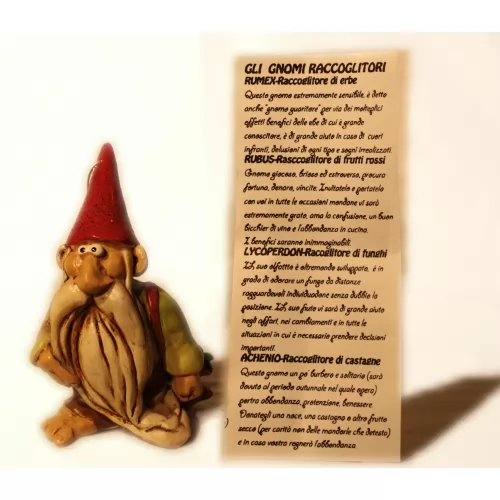 GLI GNOMI RACCOGLITORI
RUMEX-Raccoglitore di erbe
Questo gnomo estremamente sensibile, è detto
anche "gnomo guaritore" per via dei molteplici
effetti benefici delle ebe di cui è grande
conoscitore, è di grande aiuto in caso di cuori
infranti, delusioni di ogni tipo e sogni irrealizzati.
RUBUS-Rasccoglitore di frutti rossi
Gnomo giocoso, brioso ed estroverso, procura
fortuna, denaro, vincite. Invitatelo e portatelo
con voi in tutte le occasioni mondane vi sarà
estremamente grato, ama la confusione, un buon
bicchier di vino e l'abbondanza in cucina.
I benefici saranno inimmaginabili.
LYCOPERDON-Raccoglitore di funghi
suo olfatto è oltremodo sviluppato, è in
grado di odorare un fungo da distanze
ragguardevoli individuadone senza dubbio la
posizione. suo fiuto vi sarà di grande aiuto
negli affari, nei cambiamenti e in tutte le
situazioni in cui è necessario prendere decisioni
importanti.
ACHENIO-Raccoglitore di castagne
Questo gnomo un po' burbero e solitario (sarà
dovuto al periodo autunnale nel quale opera)
porta abbondanza, protezione, benessere.
Donategli una noce, una castagna o altro frutto
secco (per carità non delle mandorle che detesta)
e in casa vostra regnerà l'abbondanza.